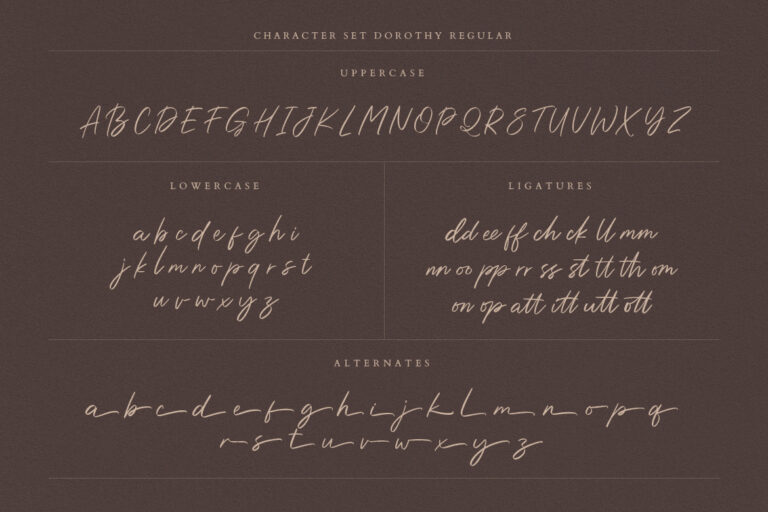 CHARACTER SET DOROTHY REGULAR
UPPERCASE
ABCDEFGHIJKLMNOPQRSTUVWXYZ
LOWERCASE
a b c d e f g h i
j k l m n o p q r s t
u v w x y z
LIGATURES
dd ee ff ch ck ll mm
nn oo pp rr ss st tt th om
on op att itt utt ott
ALTERNATES
a b c d e f g h i j k l m n o p q
r s t u v w x y z